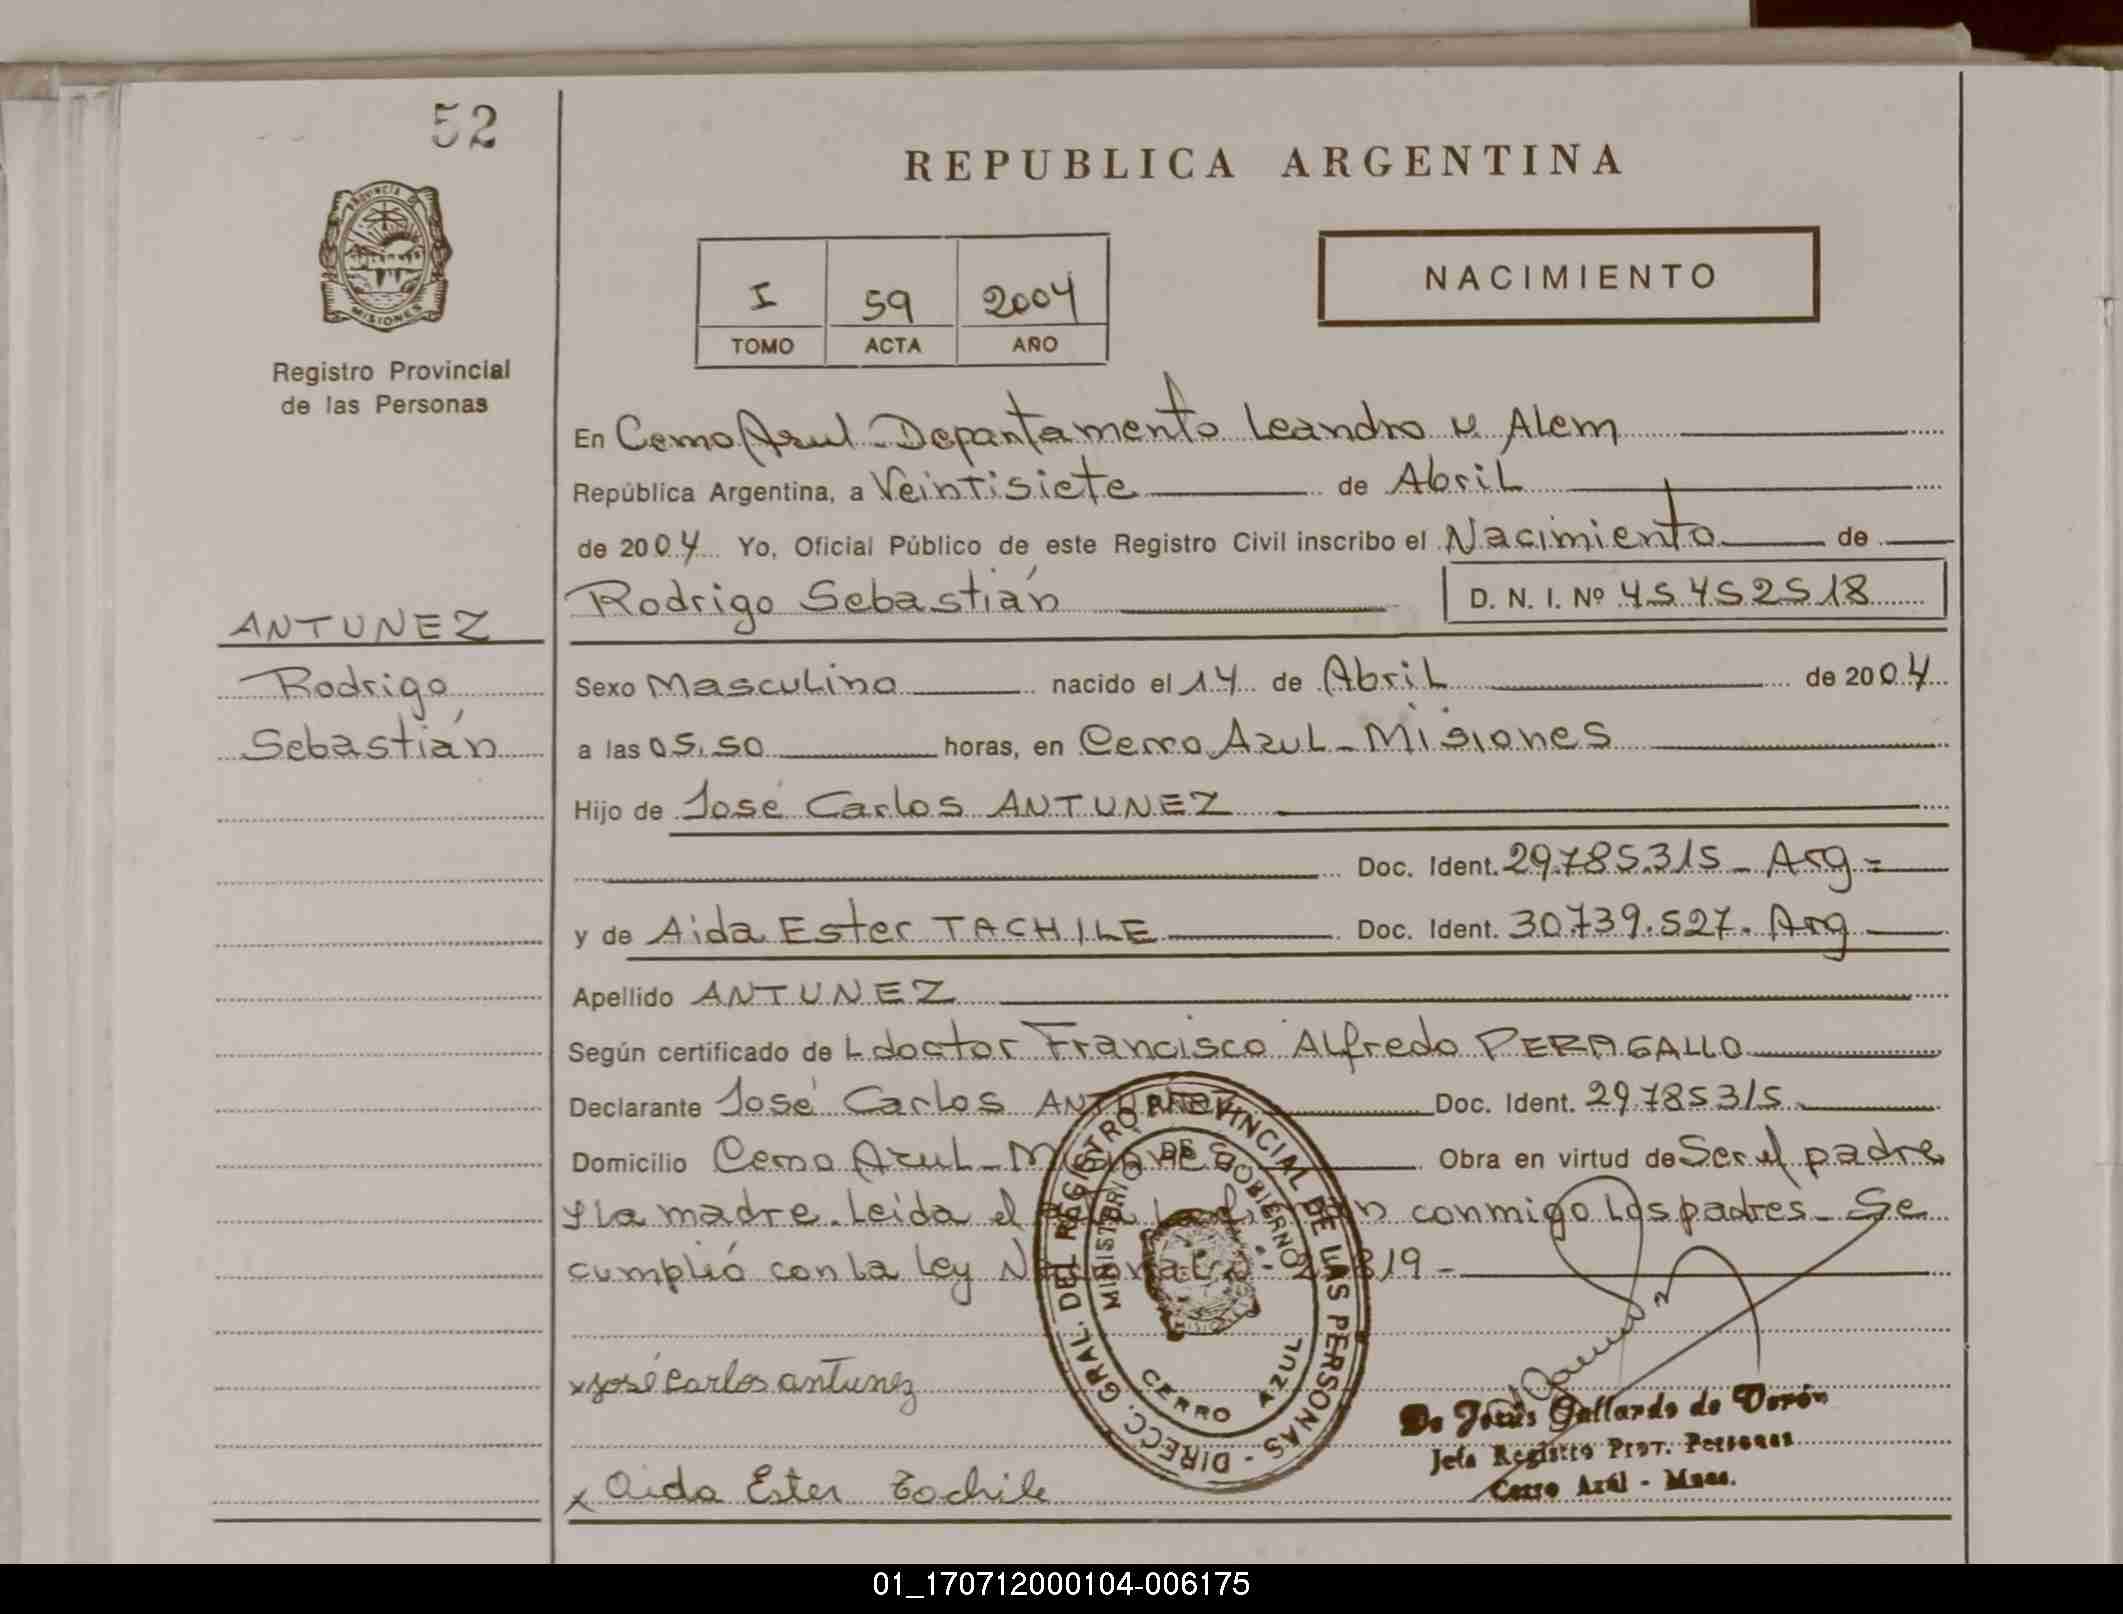 52
PROVINCIA DE
MISIONES
Registro Provincial
de las Personas
REPUBLICA ARGENTINA
I 59 2004
TOMO ACTA AÑO
NACIMIENTO
En Cerro Azul - Departamento Leandro N. Alem
República Argentina, a Veintisiete de Abril
de 2004 Yo, Oficial Público de este Registro Civil inscribo el Nacimiento de
Rodrigo Sebastián D. N. I. Nº 45452518
ANTUNEZ
Rodrigo
Sebastián
Sexo Masculino nacido el 14 de Abril de 2004
a las 05.50 horas, en Cerro Azul - Misiones
Hijo de José Carlos ANTUNEZ
Doc. Ident. 29.785.315 - Arg =
y de Aida Ester TACHILE Doc. Ident. 30.739.527. Arg
Apellido ANTUNEZ
Según certificado de L doctor Francisco Alfredo PERAGALLO
Declarante José Carlos ANTUNEZ Doc. Ident. 29.785315
Domicilio Cerro Azul - Misiones Obra en virtud de Ser el padre
y la madre. Leida el acta la firman conmigo los padres - Se
cumplió con la Ley Nacional 819 -
x José Carlos antunez
x Aida Ester Tachile
DIRECC. GRAL. DEL REGISTRO PROVINCIAL DE LAS PERSONAS -
MINISTERIO DE GOBIERNO
CERRO AZUL
De Jesús Gallardo de Verón
Jefa Registro Prov. Personas
Cerro Azul - Mnes.
01_170712000104-006175